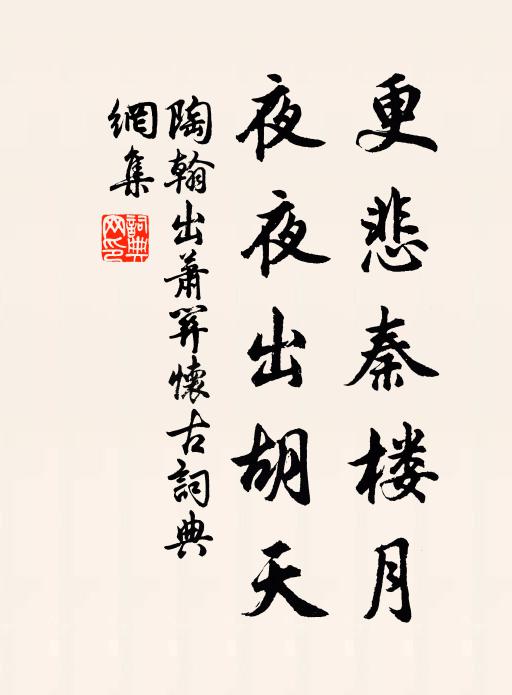 更悲秦楼月
夜夜出胡天
陶翰出萧关懷古詞典
網集
詞典網印